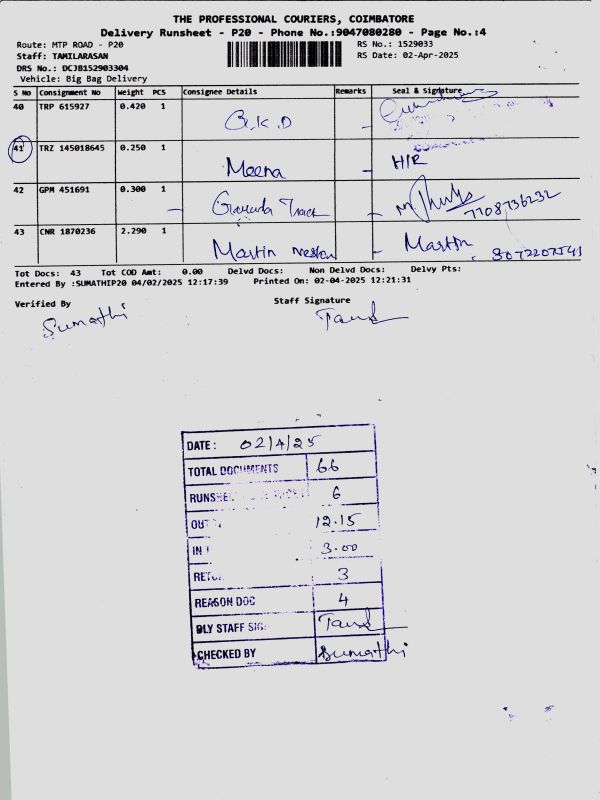 THE PROFESSIONAL COURIERS, COIMBATORE
Delivery Runsheet - P20 - Phone No.:9047080280 - Page No.:4
Route: MTP ROAD - P20
RS No.: 1529033
Staff: TAMILARASAN
RS Date: 02-Apr-2025
DRS No.: DCJB152903304
Vehicle: Big Bag Delivery
S No Consignment No Weight PCS Consignee Details Remarks Seal & Signature
40 TRP 615927 0.420 1 G.K.D
41 TRZ 145018645 0.250 1 Meena H/R
42 GPM 451691 0.300 1 7708736232
43 CNR 1870236 2.290 1 Martin Martin
Tot Docs: 43 Tot COD Amt: 0.00 Delvd Docs: Non Delvd Docs: Delvy Pts:
Entered By :SUMATHIP20 04/02/2025 12:17:39 Printed On: 02-04-2025 12:21:31
Verified By Staff Signature
Sumathi
DATE: 02/4/25
TOTAL DOCUMENTS 66
6
12.15
IN 3.00
3
REASON DOC 4
DLY STAFF
CHECKED BY Sumathi